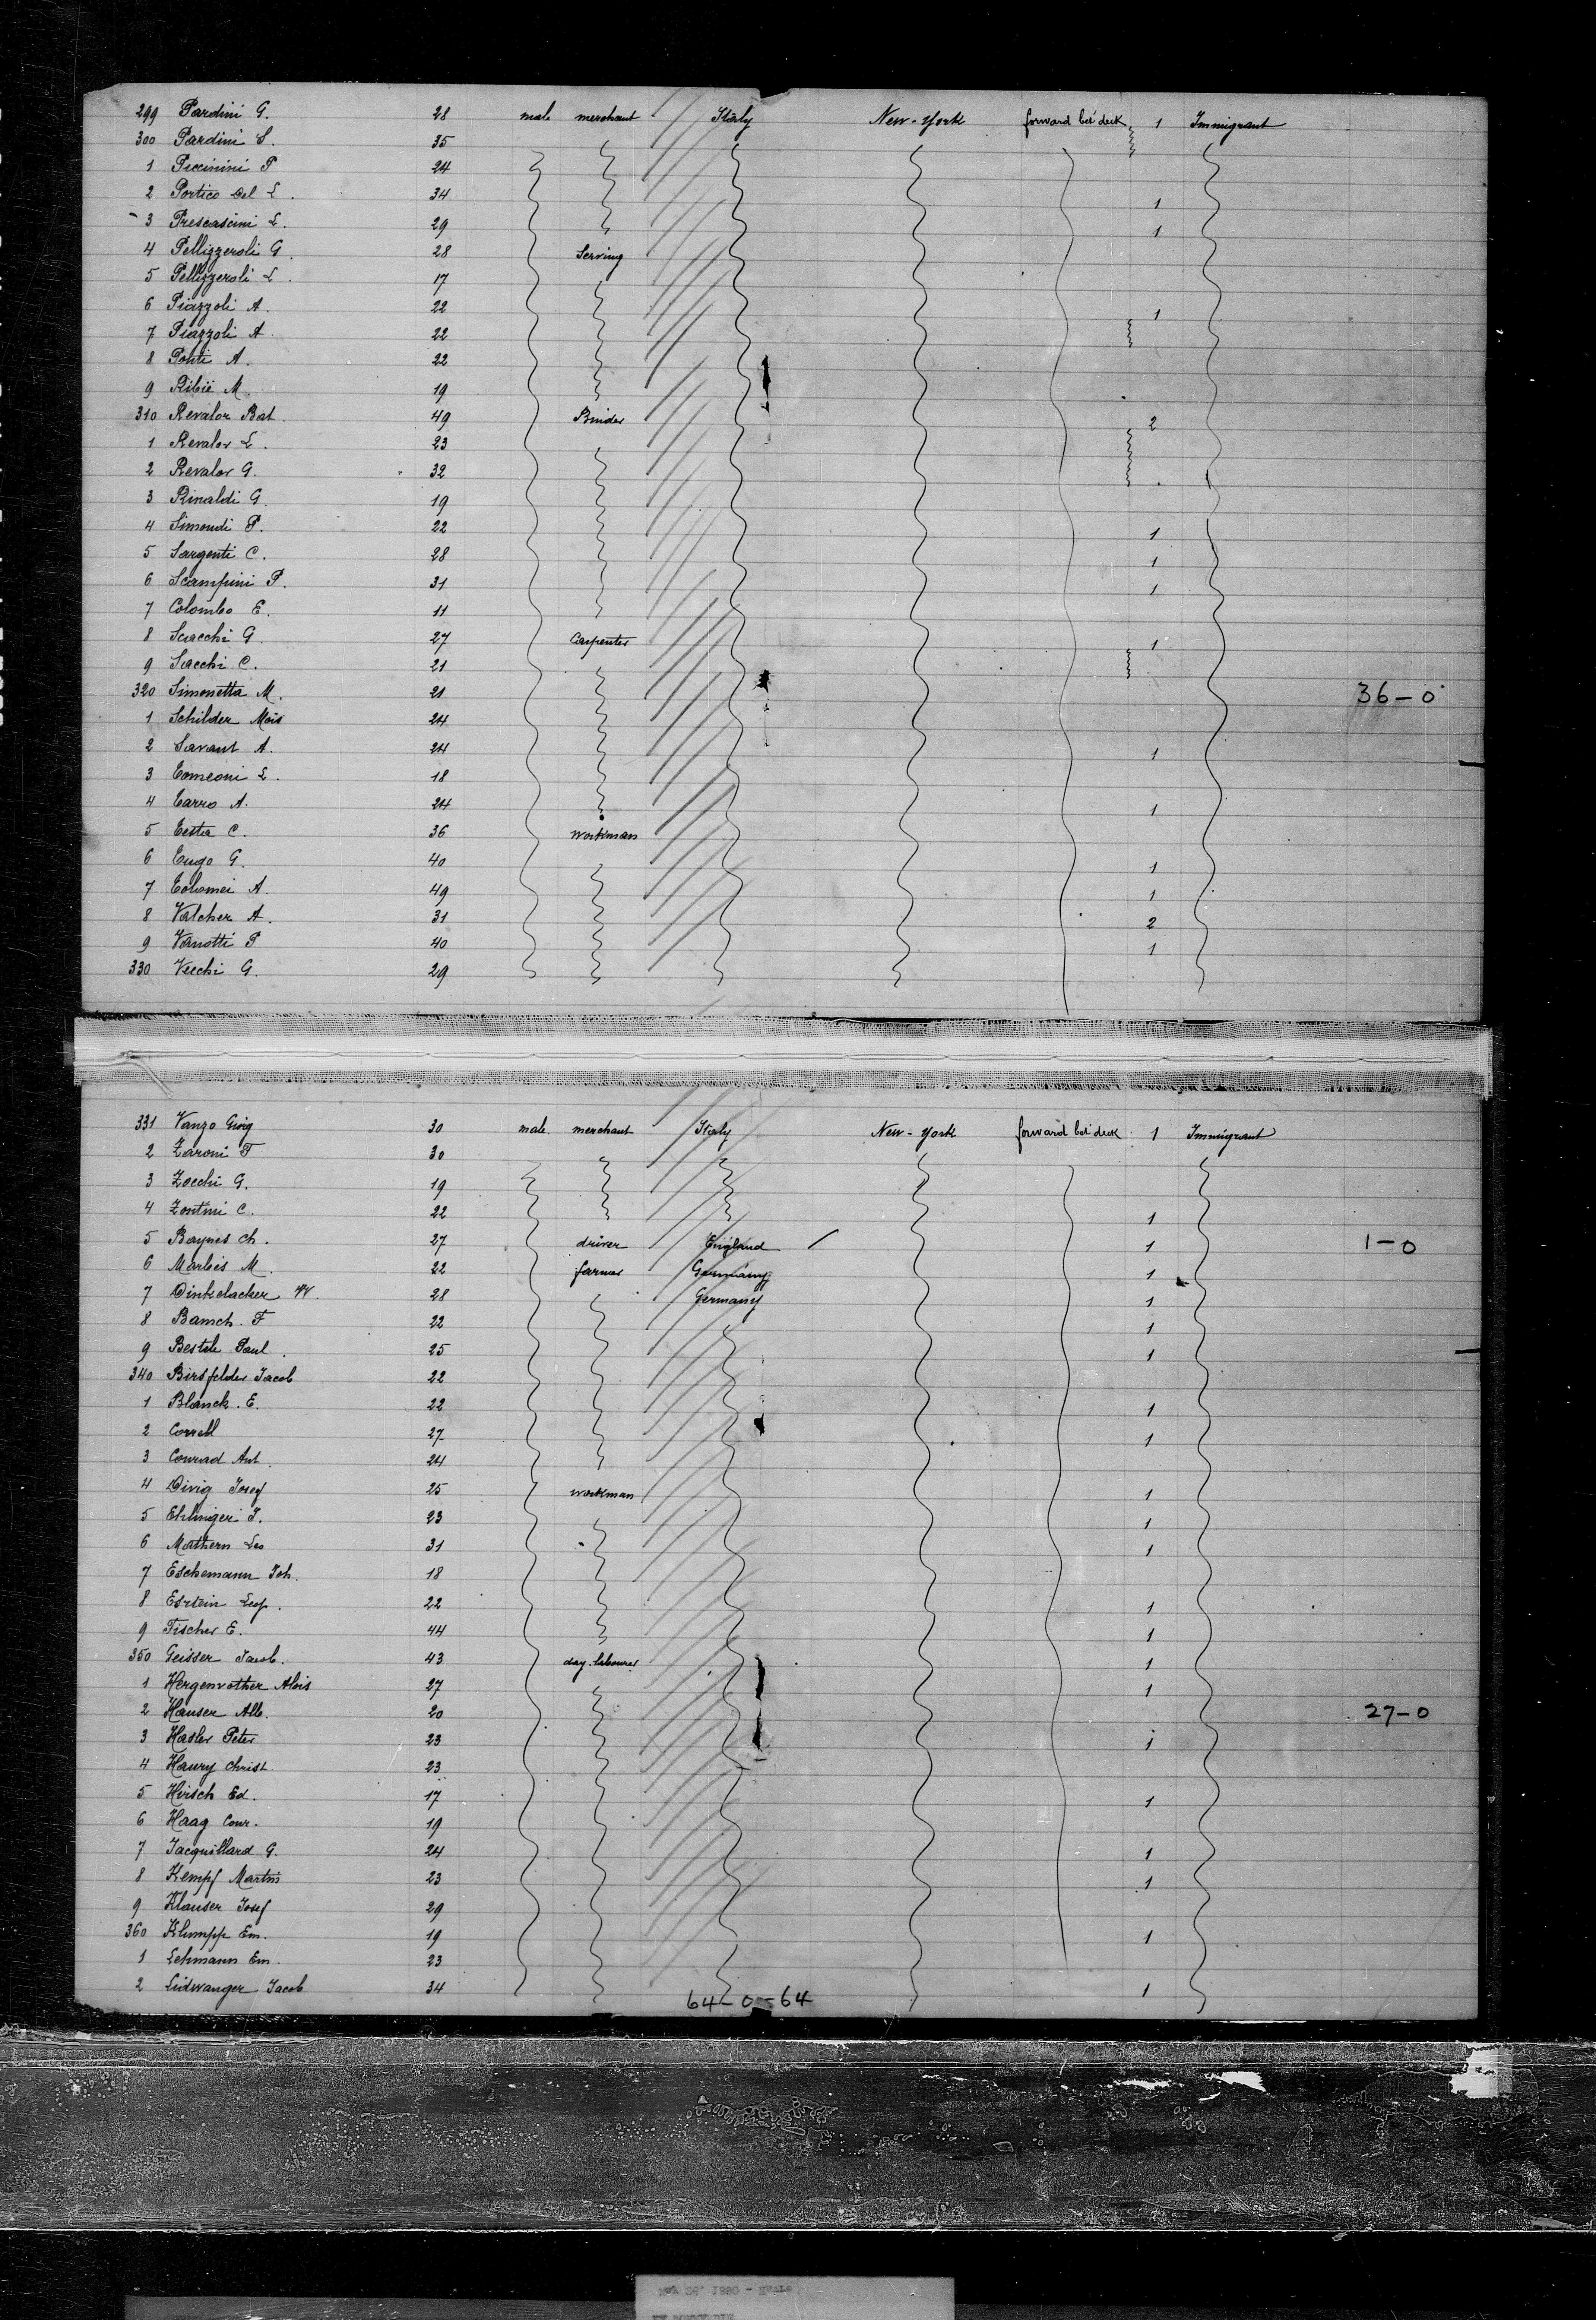 299 Pardini G. 28 male merchant Italy New-York forward bet deck 1 Immigrant
300 Pardini S. 35
1 Piccinini P 24
2 Portico Del L. 34 1
3 Prescascini L. 29 1
4 Pellizzeroli G. 28 Serving
5 Pellizzeroli L. 17
6 Piazzoli A. 22 1
7 Piazzoli A 22
8 Ponti A. 22
9 Ribié M. 19
310 Revalor Bat. 49 Binder 2
1 Revalor L. 23
2 Revalor G. 32
3 Rinaldi G. 19
4 Simondi P. 22 1
5 Sargenti C. 28 1
6 Scampini P. 31 1
7 Colombo E. 11
8 Sciacchi G. 27 Carpenter 1
9 Sacchi C. 21
320 Simonetta M. 21 36-0
1 Schilder Mois 24
2 Savant A. 24 1
3 Tomeoni L. 18
4 Tarro A. 24 1
5 Testa C. 36 workman
6 Tugo G. 40 1
7 Tolomei A. 49 1
8 Valcher A. 31 2
9 Vanotti P 40 1
330 Vecchi G. 29
331 Vanzo Giog 30 male merchant Italy New-York forward bet deck 1 Immigrant
2 Zaroni F 30
3 Zocchi G. 19
4 Zontini C. 22 1
5 Baynes Ch. 27 driver England 1 1-0
6 Marbes M. 22 farmer Germany 1
7 Dinkelacker W. 28 Germany 1
8 Bansch. F 22 1
9 Bestele Paul. 25 1
340 Birsfelder Jacob 22
1 Blanck. E. 22 1
2 Correll 27 1
3 Conrad Ant. 24
4 Divig Josef 25 workman 1
5 Ehlinger J. 23 1
6 Mathern Leo 31 1
7 Eschemann Joh. 18
8 Estein Leop. 22 1
9 Fischer E. 44 1
350 Geisser Jacob. 43 day-labourer 1
1 Hergenrother Alois 27 1
2 Hauser Alb. 20 27-0
3 Hasler Peter 23 1
4 Haury Christ 23
5 Hirsch Ed. 17 1
6 Haag Conr. 19
7 Jacquillard G. 24 1
8 Kempf Martin 23 1
9 Klauser Josef 29
360 Klumpp Em. 19 1
1 Lehmann Em. 23
2 Lidwanger Jacob 34 1
64-0-64